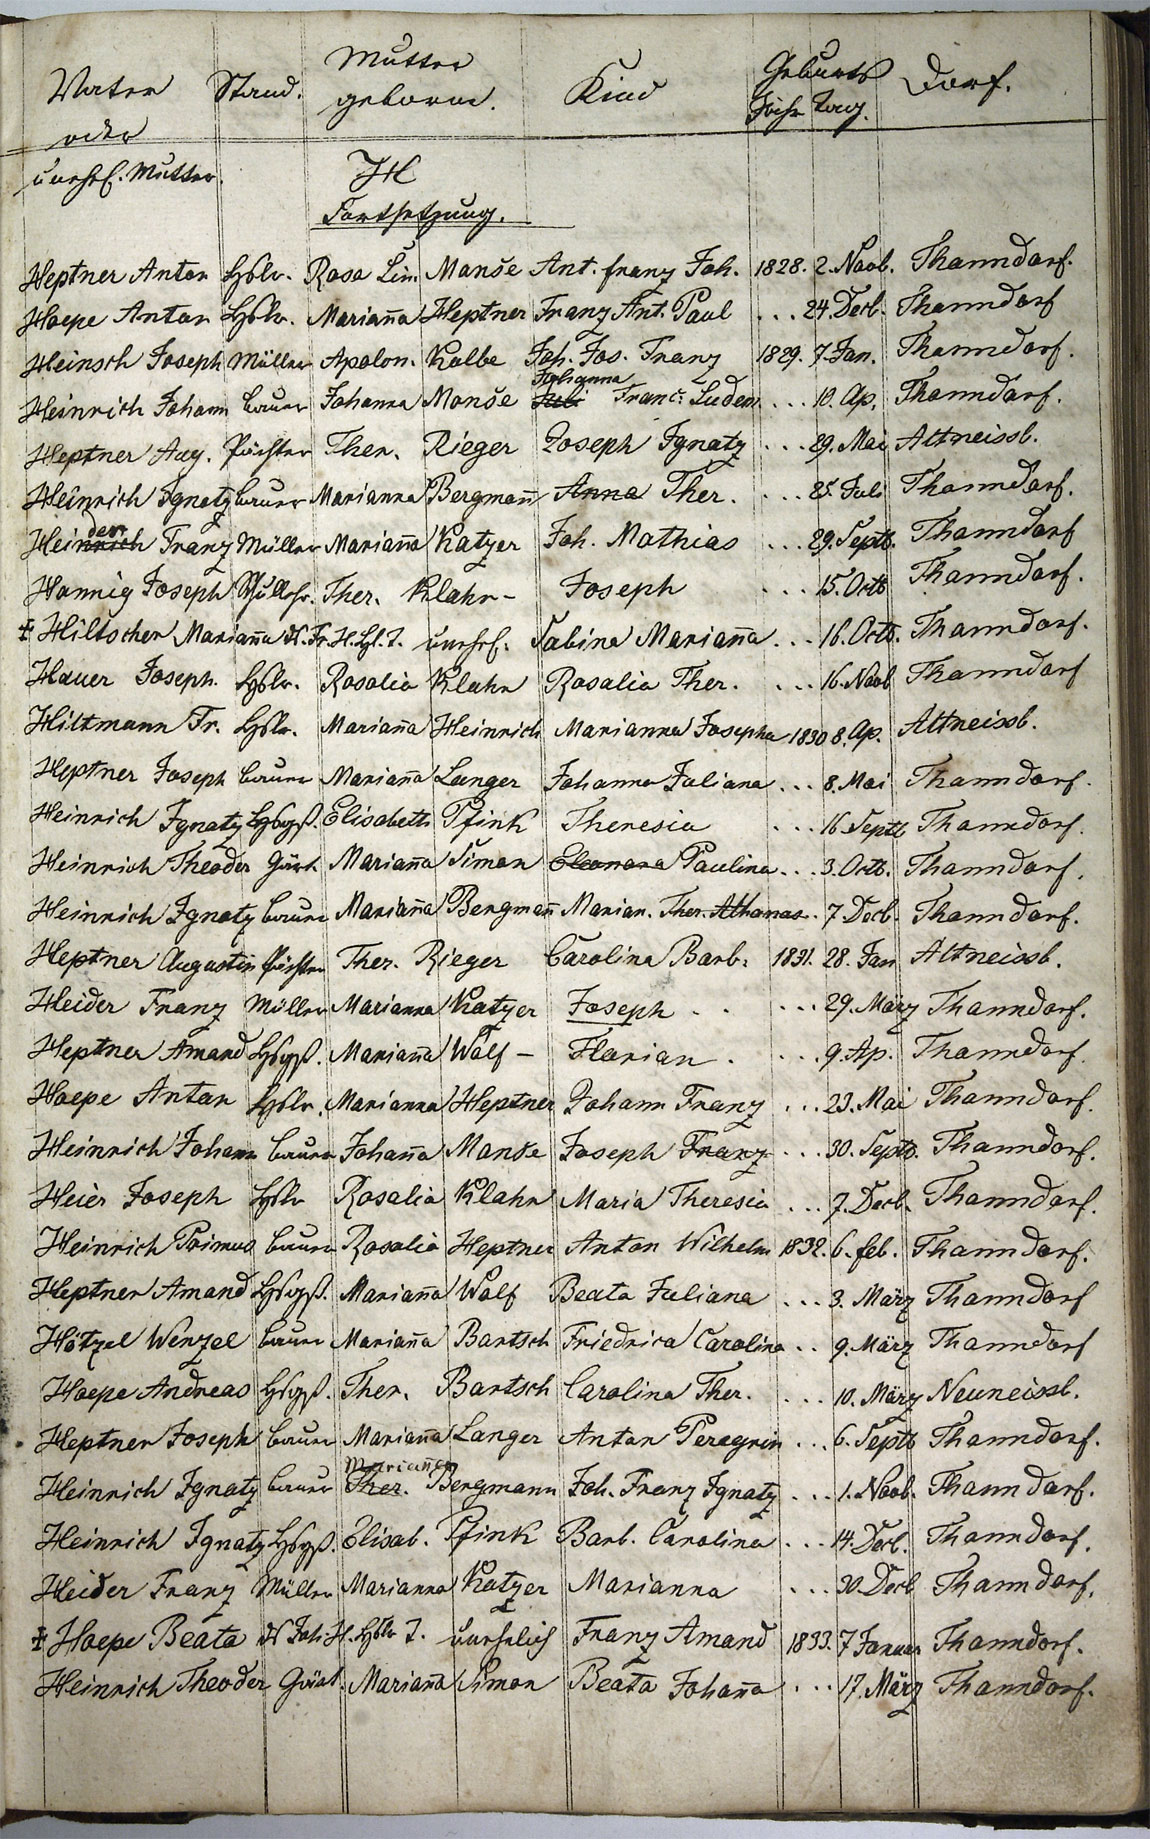 Vater Stand. Mutter Kind Geburts Dorf.
oder geborne. Jahr Tag.
unehel. Mutter.
H
Fortsetzung.
Heptner Anton Hslr. Rosa Manše Ant. franz Joh. 1828. 2. Novb. Thanndorf.
Hoepe Anton Hslr. Mariaña Heptner Franz Ant. Paul ... 24. Decb. Thanndorf
Heinsch Joseph Müller Apolon. Kolbe Joh. Jos. Franz 1829. 7. Jan. Thanndorf.
Heinrich Johann baur Johanna Monše Juliañna Franc: Ludem. ... 10. Ap. Thanndorf.
Heptner Aug. Pächter Ther. Rieger Joseph Ignatz ... 29. Mai Altneissb.
Heinrich Ignatz baur Marianna Bergmañ Anna Ther. ... 25. Juli Thanndorf.
Heinrich der Franz Müller Mariaña Katzer Joh. Mathias ... 29. Septb. Thanndorf
Hannig Joseph Schullehr. Ther. Klahr - Joseph ... 15. Octb Thanndorf.
Hiltscher Mariaña d. Fr. H. Hsl. T. unehel. Sabina Mariaña ... 16. Octb. Thanndorf.
Hauer Joseph. Hslr. Rosalia Klahr Rosalia Ther. ... 16. Novb Thanndorf
Hiltmann Fr. Hslr. Mariaña Heinrich Marianna Josepha 1830 8. Ap. Altneissb.
Heptner Joseph baur Mariaña Langer Johanna Juliana ... 8. Mai Thanndorf.
Heinrich Ignatz Hsbes. Elisabeth Pfink Theresia ... 16. Septb Thanndorf.
Heinrich Theodor Gärt. Mariaña Simon Eleonora Paulina ... 3. Octb. Thanndorf.
Heinrich Ignatz baur Mariaña Bergmañ Marian. Ther. Athanas. 7. Decb. Thanndorf.
Heptner Augustin Pächter Ther. Rieger Carolina Barb. 1831. 28. Jan Altneissb.
Heider Franz Müller Marianna Katzer Joseph ... 29. März Thanndorf.
Heptner Amand Mariaña Wolf - Florian ... 9. Ap. Thanndorf.
Hoepe Anton Hslr. Marianna Heptner Johann Franz ... 23. Mai Thanndorf.
Heinrich Johann baur Johaña Monše Joseph Franz ... 30. Septb. Thanndorf.
Heier Joseph Hslr Rosalia Klahr Maria Theresia ... 7. Decb. Thanndorf.
Heinrich Primus baur Rosalia Heptner Anton Wilhelm 1832. 6. feb. Thanndorf.
Heptner Amand Mariaña Wolf Beata Juliana ... 3. März Thanndorf
Hötzel Wenzel baur Mariaña Bartsch Friedrica Carolina .. 9. März Thanndorf
Hoepe Andreas Ther. Bartsch Carolina Ther. ... 10. März Neuneissb.
Heptner Joseph baur Mariaña Langer Anton Peregrin ... 6. Septb Thanndorf.
Heinrich Ignatz baur Ther. Mariaña Bergmann Joh. Franz Ignatz ... 1. Novb. Thanndorf.
Heinrich Ignatz Elisab. Pfink Barb. Carolina ... 14. Decb. Thanndorf.
Heider Franz Müller Marianna Katzer Marianna ... 30. Decb Thanndorf.
Hoepe Beata d Joh. H. Hslr T. unehelich Franz Amand 1833. 7 Januar Thanndorf.
Heinrich Theodor Gärt. Mariaña Simon Beata Johaña ... 17. März Thanndorf.